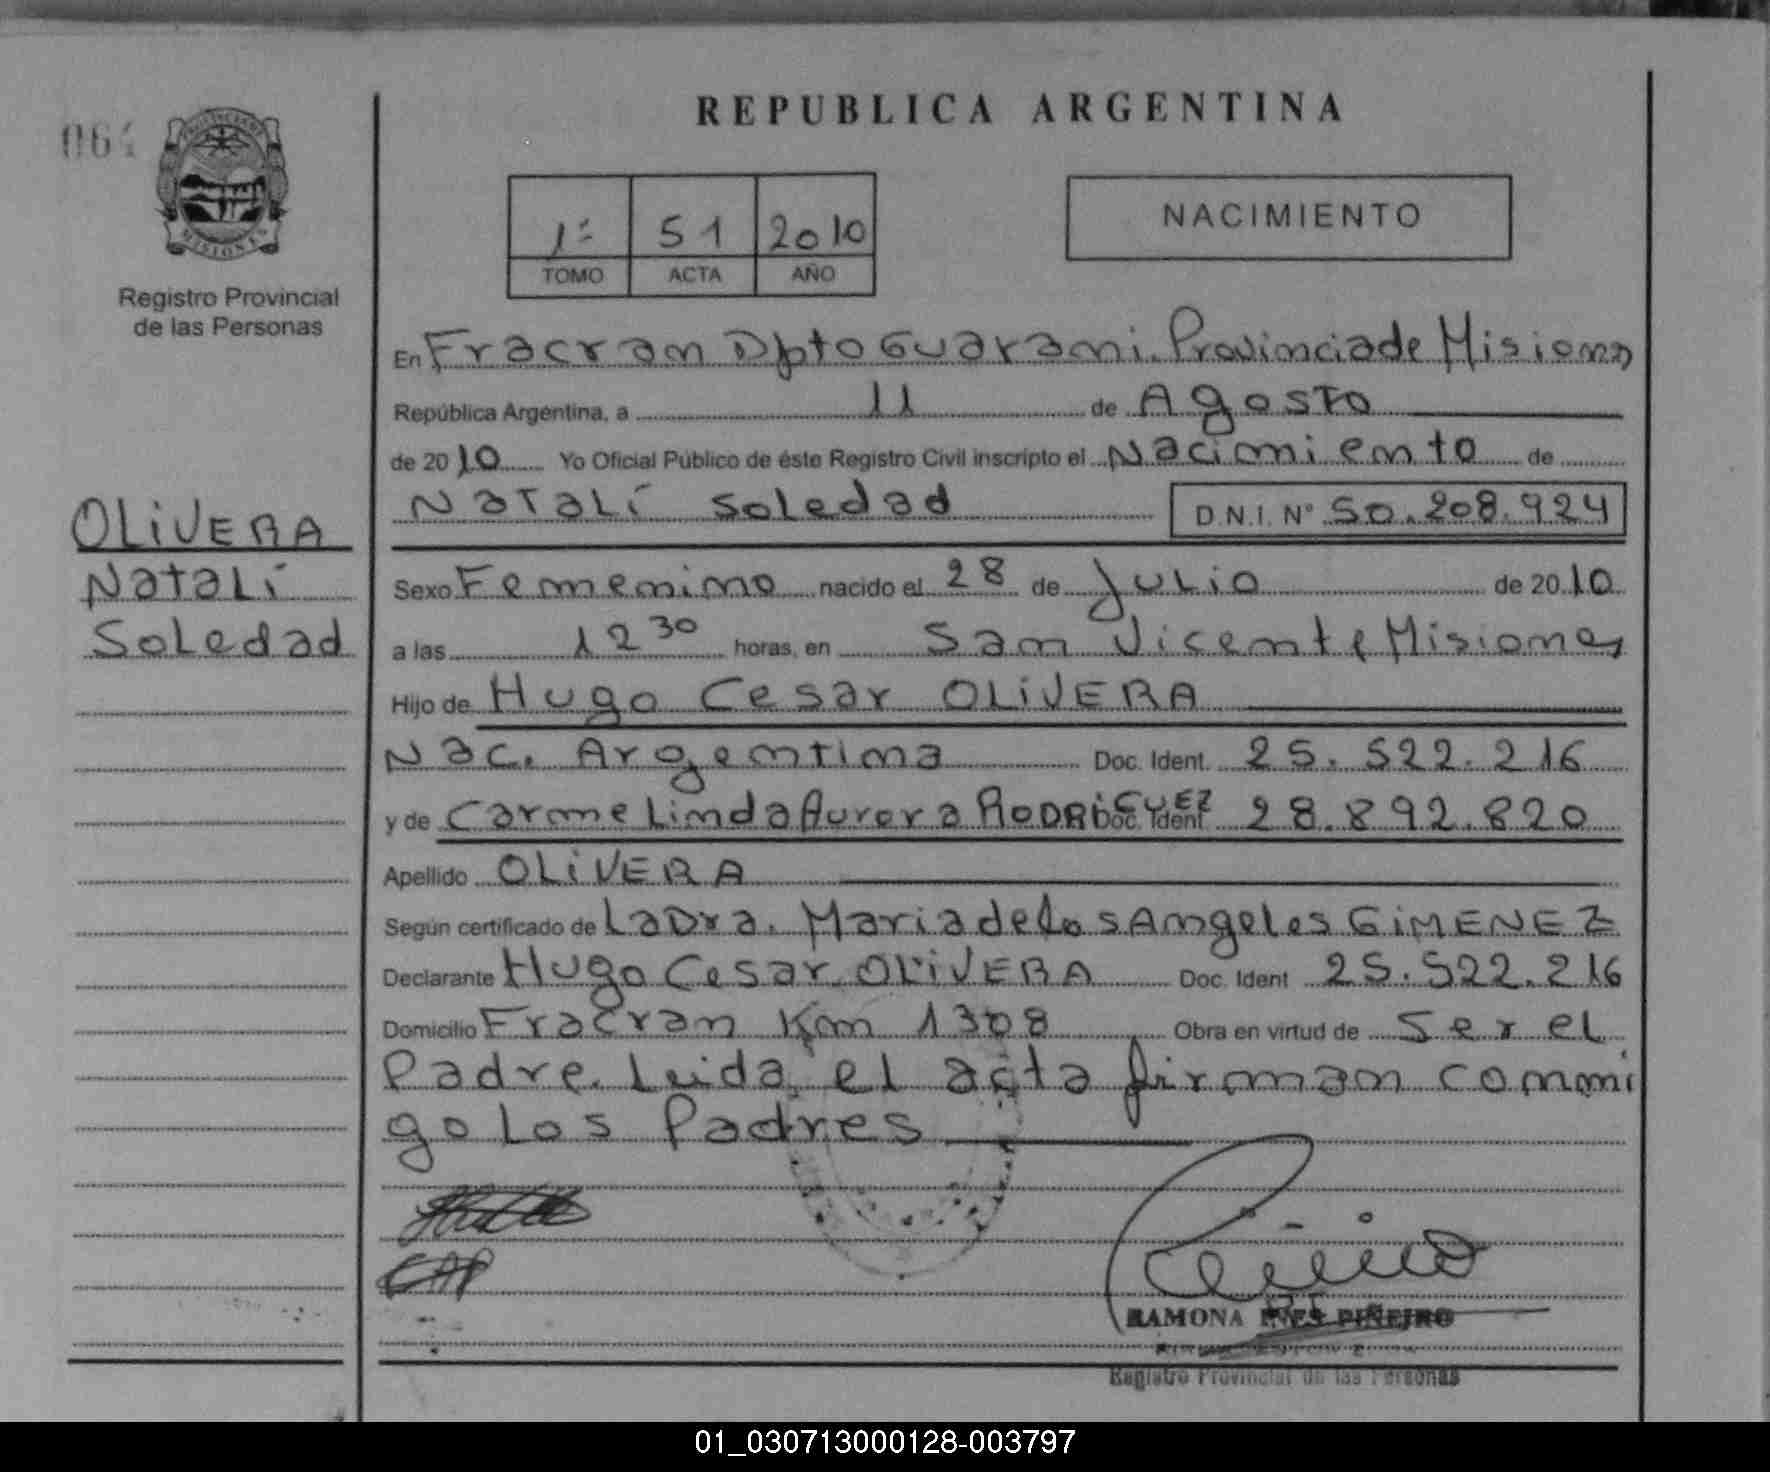 REPUBLICA ARGENTINA
064
PROVINCIA DE
MISIONES
Registro Provincial
de las Personas
1º 51 2010
TOMO ACTA AÑO
NACIMIENTO
En Fracran Dpto Guarani. Provincia de Misiones
República Argentina, a 11 de Agosto
de 2010 Yo Oficial Público de éste Registro Civil inscripto el Nacimiento de
Natalí Soledad D.N.I. Nº 50.208.924
OLIVERA
Natalí
Soledad
Sexo Femenino nacido el 28 de Julio de 2010
a las 12 30 horas, en San Vicente Misiones
Hijo de Hugo Cesar OLIVERA
Nac. Argentina Doc. Ident. 25.522.216
y de Carmelinda Aurora RODRIGUEZ Doc. Ident 28.892.820
Apellido OLIVERA
Según certificado de La Dra. Maria de los Angeles GIMENEZ
Declarante Hugo Cesar OLIVERA Doc. Ident 25.522.216
Domicilio Fracran Km 1308 Obra en virtud de Ser el
Padre. Leida el acta firman conmi
go los Padres
CAR
RAMONA INES PIÑEIRO
Registro Provincial de las Personas
01_030713000128-003797